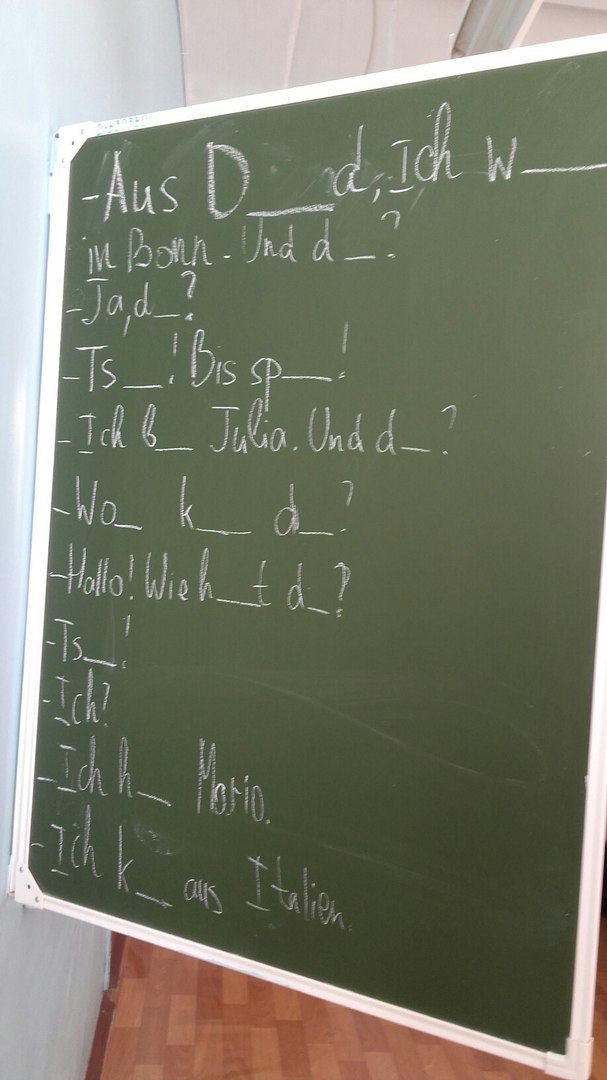 -Aus D___d, Ich w___
in Bonn. Und d_?
-Ja, d_?
-Ts__! Bis sp__!
-Ich b_ Julia. Und d_?
-Wo_ k__ d_?
-Hallo! Wie h__t d_?
-Ts__!
-Ich?
-Ich h_ Mario.
-Ich k_ aus Italien.